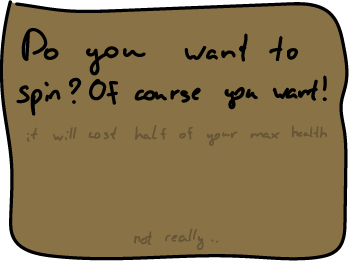 Do you want to
spin? Of course you want!
it will cost half of your max health
not really..